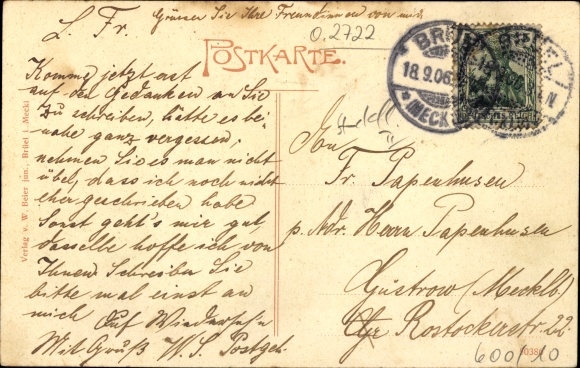 L. Fr. Grüssen Sie Ihre Freundinnen von mir
0.2722
POSTKARTE.
BRÜEL
18.9.06.
MECK
Komme jetzt erst
auf den Gedanken an Sie
zu schreiben, hätte es bei
nahe ganz vergessen,
nehmen Sie es man nicht
übel, dass ich noch nicht
eher geschrieben habe
Sonst geht's mir gut,
dasselbe hoffe ich von
Ihnen Schreiben Sie
bitte mal einst an
mich Auf Wiederseh'n
Mit Gruß W. S. Postgeh.
An
Fr. Papenhusen
p. Adr. Herrn Papenhusen
Güstrow (Mecklb.)
Rostockerstr. 22.
600/10
Verlag v. W. Beier jun., Brüel i. Meckl.